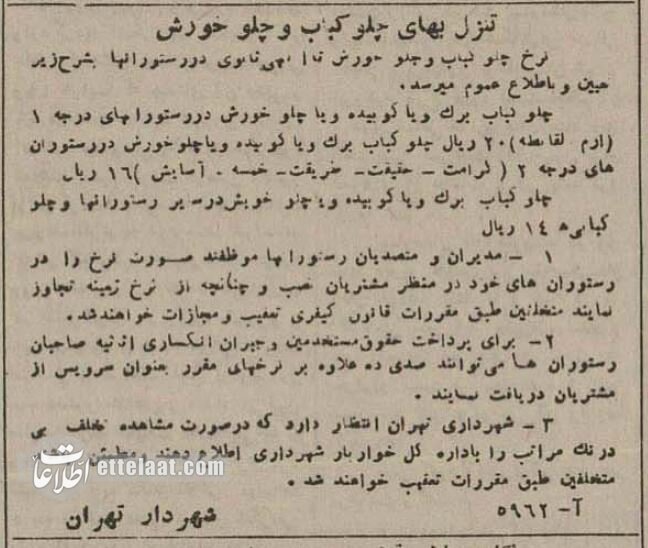 تنزل بهای چلو کباب و چلو خورش
نرخ چلو کباب و چلو خورش تا آگهی ثانوی در رستورانها بشرح زیر
تعیین و باطلاع عموم میرسد.
چلو کباب برگ و یا کوبیده و یا چلو خورش در رستورانهای درجه ۱
لقانطه) ۲۰ ریال چلو کباب برگ و یا کوبیده و یا چلو خورش در رستوران
های درجه ۲ (کرامت ـ حقیقت ـ طریقت ـ خمسه ـ آسایش) ۱۶ ریال
چلو کباب برگ و یا کوبیده و یا چلو خورش در سایر رستورانها و چلو
کبابی‌ها ۱۴ ریال
۱ ـ مدیران و متصدیان رستورانها موظفند صورت نرخ را در
رستوران های خود در منظر مشتریان نصب و چنانچه از نرخ زمینه تجاوز
نمایند متخلفین طبق مقررات قانون کیفری تعقیب و مجازات خواهند شد.
۲ـ برای پرداخت حقوق مستخدمین و جبران انکساری اثثیه صاحبان
رستوران ها می‌توانند صدی ده علاوه بر نرخهای مقرر بعنوان سرویس از
مشتریان دریافت نمایند.
۳ ـ شهرداری تهران انتظار دارد که در صورت مشاهده تخلف بی
درنگ مراتب را باداره کل خواربار شهرداری اطلاع دهند و مطمئن
متخلفین طبق مقررات تعقیب خواهند شد.
آ- ۵۹۶۲
شهردار تهران
اطلاعات ettelaat.com